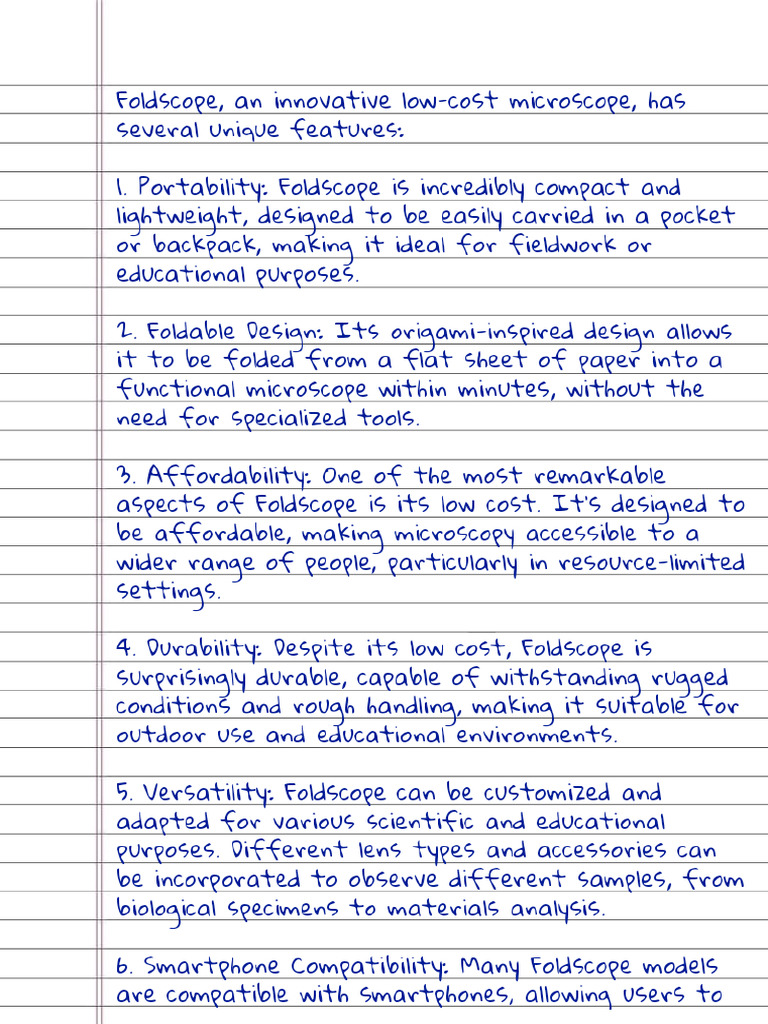 Foldscope, an innovative low-cost microscope, has
several unique features:
1. Portability: Foldscope is incredibly compact and
lightweight, designed to be easily carried in a pocket
or backpack, making it ideal for fieldwork or
educational purposes.
2. Foldable Design: Its origami-inspired design allows
it to be folded from a flat sheet of paper into a
functional microscope within minutes, without the
need for specialized tools.
3. Affordability: One of the most remarkable
aspects of Foldscope is its low cost. It's designed to
be affordable, making microscopy accessible to a
wider range of people, particularly in resource-limited
settings.
4. Durability: Despite its low cost, Foldscope is
surprisingly durable, capable of withstanding rugged
conditions and rough handling, making it suitable for
outdoor use and educational environments.
5. Versatility: Foldscope can be customized and
adapted for various scientific and educational
purposes. Different lens types and accessories can
be incorporated to observe different samples, from
biological specimens to materials analysis.
6. Smartphone Compatibility: Many Foldscope models
are compatible with smartphones, allowing users to